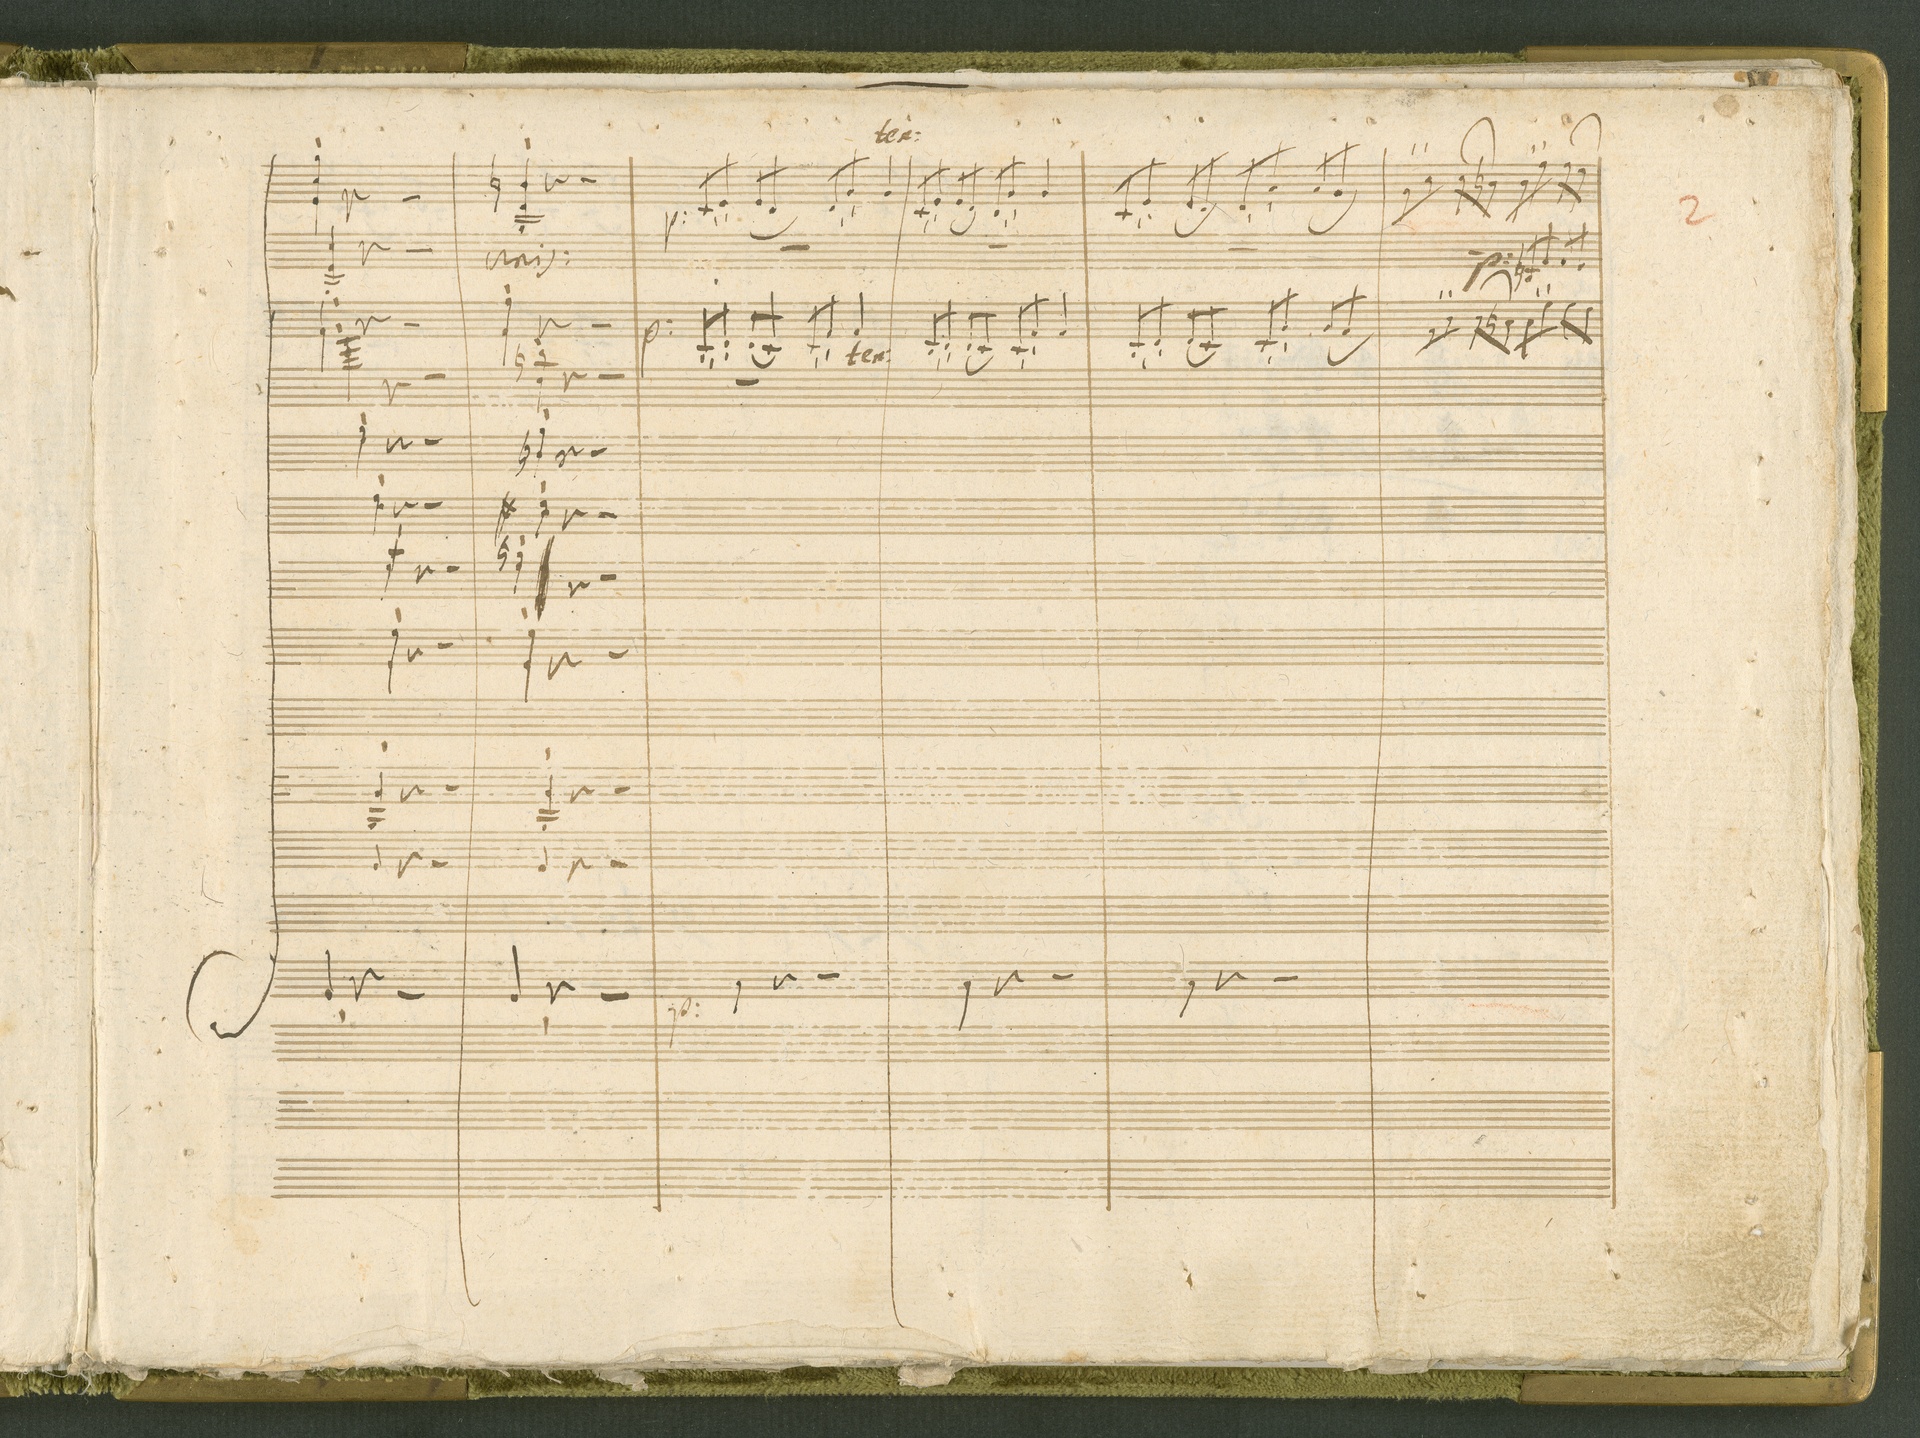 ten:
p:
2
unis:
p:
p:
ten:
p: